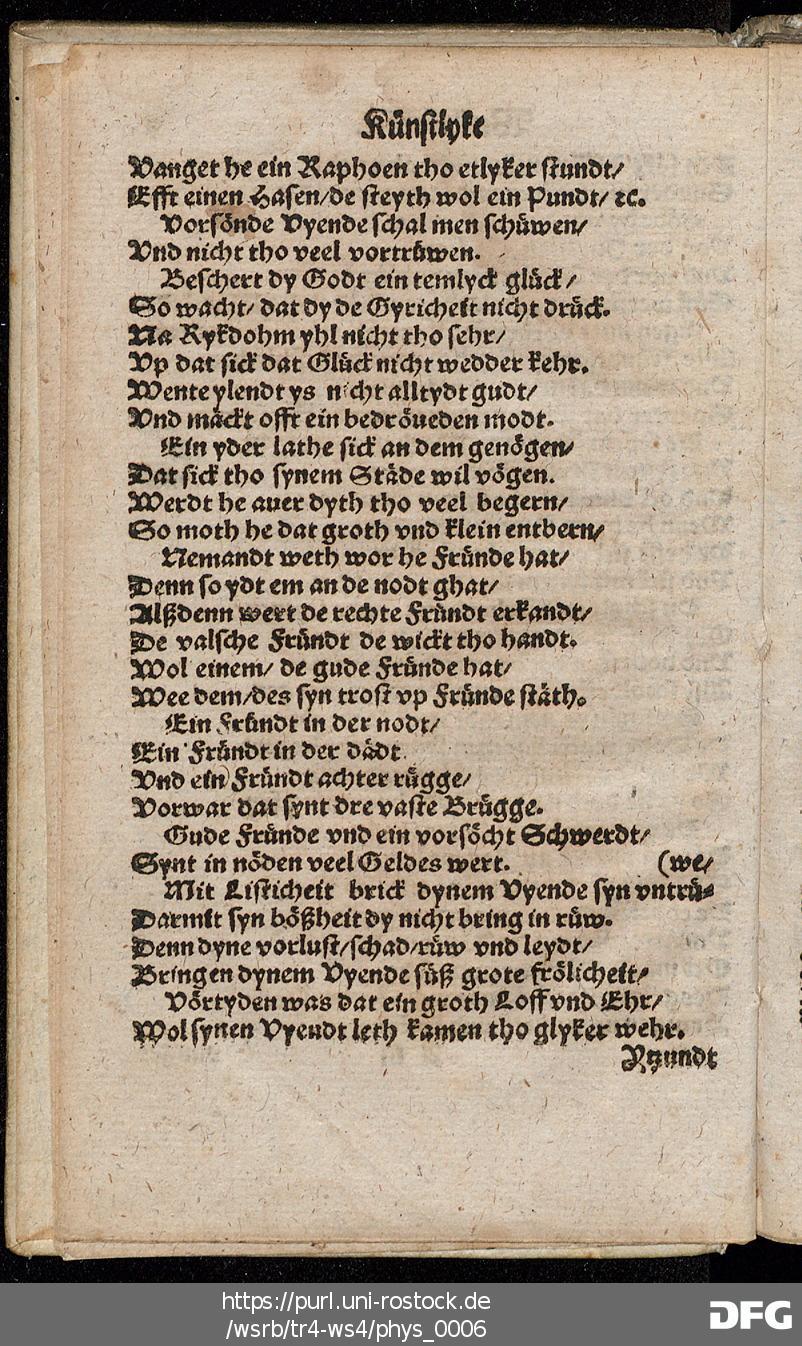 Künstlyke
Vanget he ein Raphoen tho etlyker stundt/
Efft einen Hasen/de steyth wol ein Pundt/ ꝛc.
Vorsönde Vyende schal men schüwen/
Vnd nicht tho veel vortrüwen.
Beschert dy Godt ein temlyck glück/
So wacht/ dat dy de Gyricheit nicht drück.
Na Rykdohm yhl nicht tho sehr/
Vp dat sick dat Glück nicht wedder kehr.
Wente ylendt ys nicht alltydt gudt/
Vnd mäckt offt ein bedröueden modt.
Ein yder lathe sick an dem genögen/
Dat sick tho synem Städe wil vögen.
Werdt he auer dyth tho veel begern/
So moth he dat groth vnd klein entbern/
Nemandt weth wor he Fründe hat/
Denn so ydt em an de nodt ghat/
Alßdenn wert de rechte Fründt erkandt/
De valsche Fründt de wickt tho handt.
Wol einem/ de gude Fründe hat/
Wee dem/des syn trost vp Fründe stäth.
Ein Fründt in der nodt/
Ein Fründt in der dädt
Vnd ein Fründt achter rügge/
Vorwar dat synt dre vaste Brügge.
Gude Fründe vnd ein vorsöcht Schwerdt/
Synt in nöden veel Geldes wert. (we/
Mit Listicheit brick dynem Vyende syn vntrü⸗
Darmit syn bößheit dy nicht bring in rüw.
Denn dyne vorlust/schad/rüw vnd leydt/
Bringen dynem Vyende süß grote frölicheit/
Vörtyden was dat ein groth Loff vnd Ehr/
Wol synen Vyendt leth kamen tho glyker wehr.
Ytzundt
https://purl.uni-rostock.de
/wsrb/tr4-ws4/phys_0006
DFG